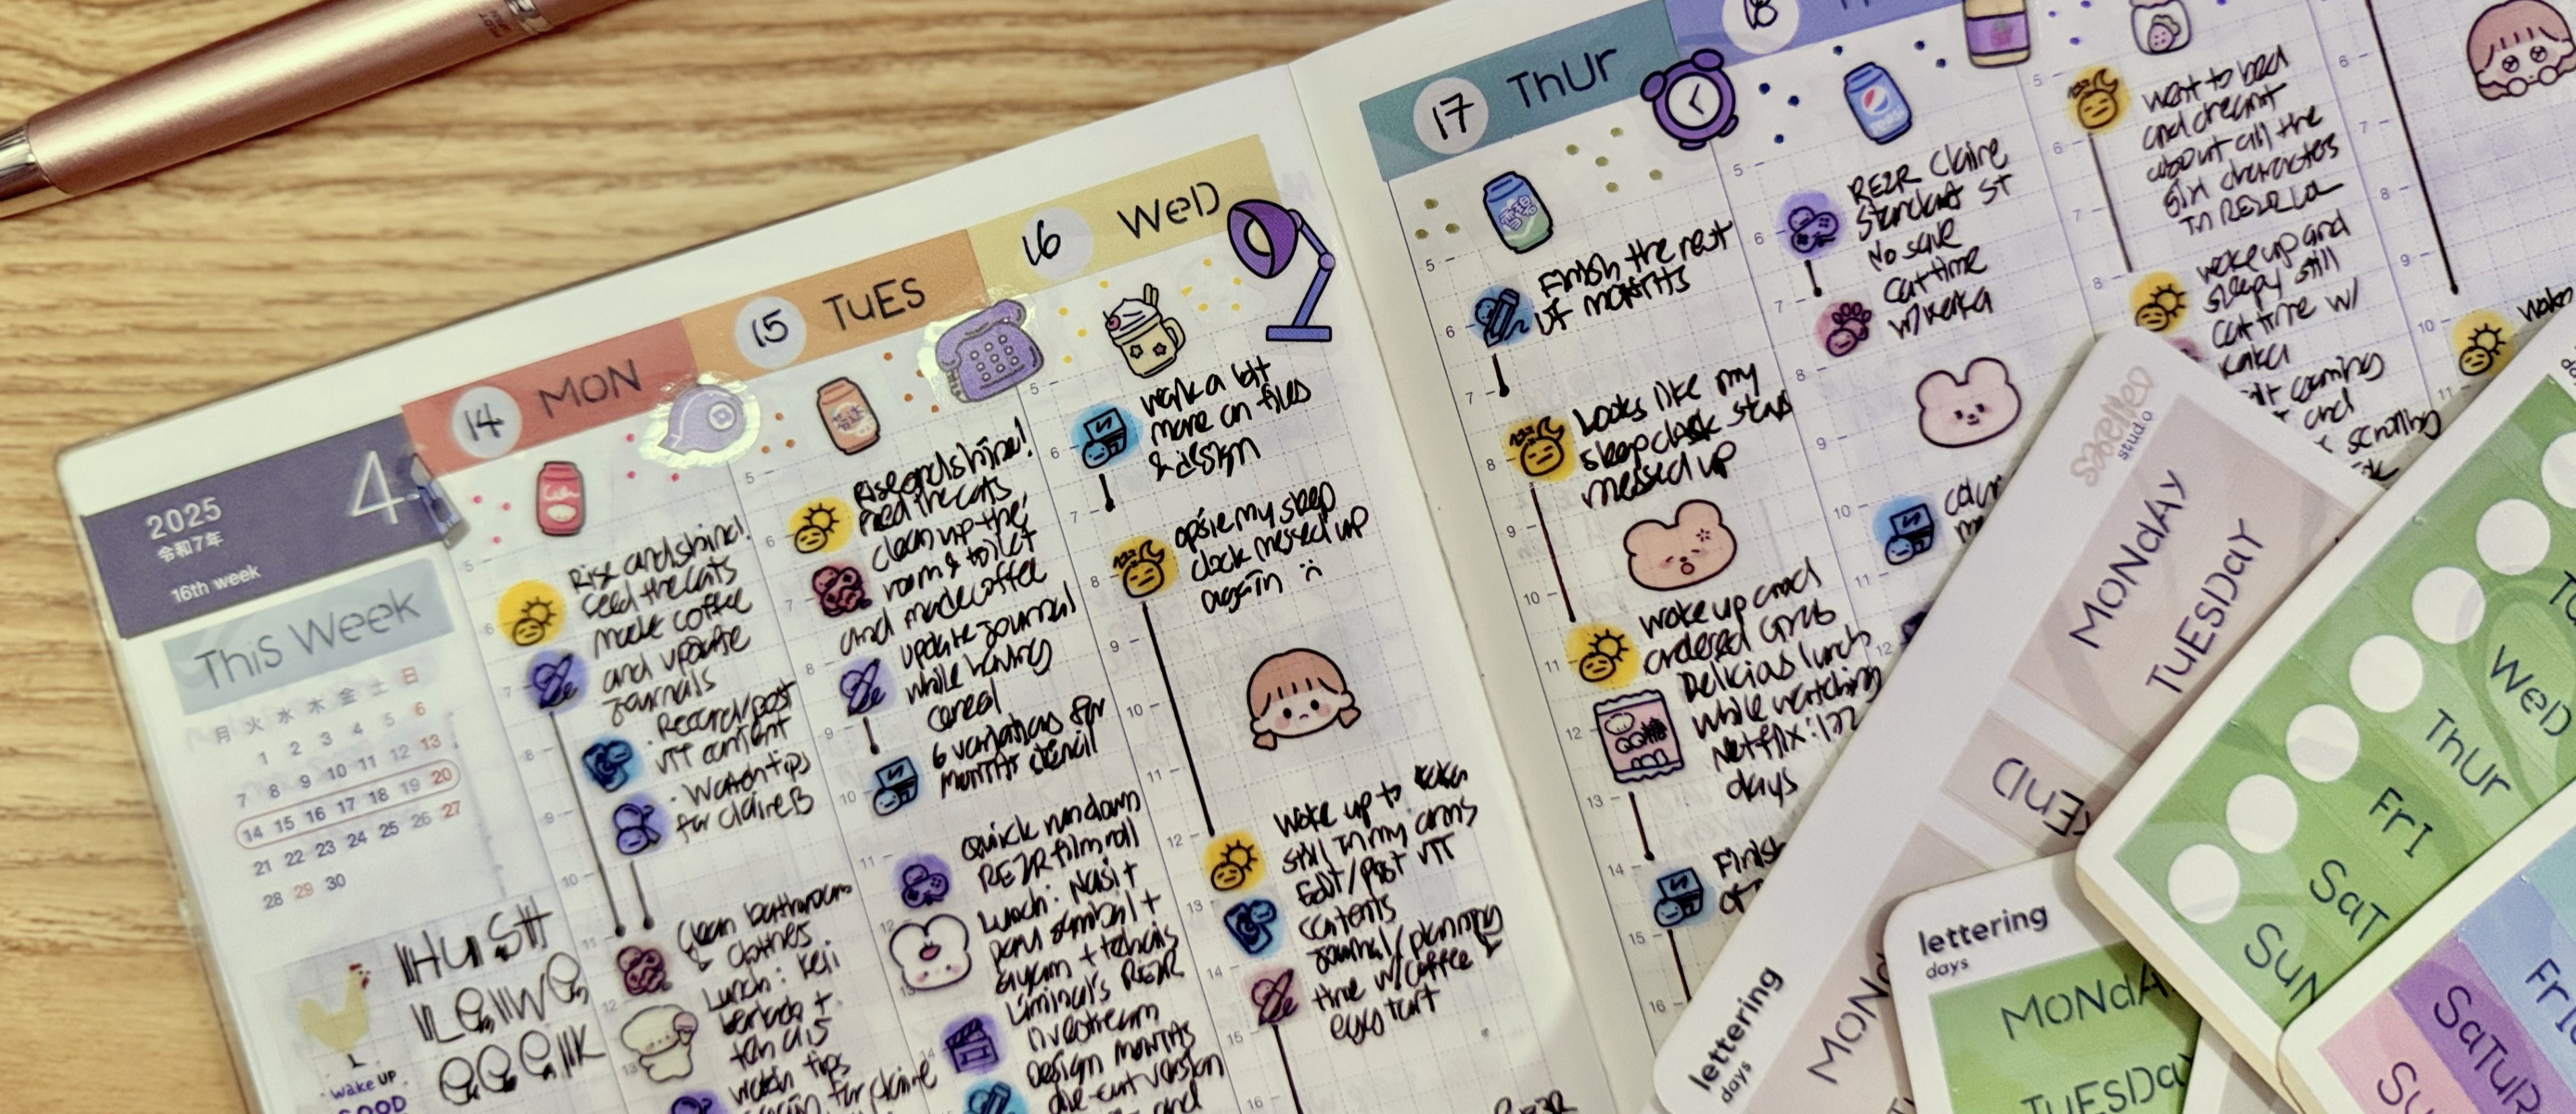 2025
令和7年
16th week
4
This Week
月 火 水 木 金 土 日
1 2 3 4 5 6
7 8 9 10 11 12 13
14 15 16 17 18 19 20
21 22 23 24 25 26 27
28 29 30
wake up
GOOD
14 MON
Rise and shine!
feed the cats
make coffee
and update
journals
Record/post
VTT content
Watch tips
for Claire B
Clean bathroom
& clothes
Lunch: Keli
berlado +
teh ais
watch tips
for Claire
15 TUES
Rise and shine!
feed the cats
clean up the
room & toilet
and made coffee
update journal
while having
cereal
6 variations for
MONTHS stencil
Quick rundown
RE2R film roll
Lunch: Nasi +
paru sambal +
ayam + teh ais
Liminal's RE2R
livestream
Design MONTHS
die-cut version
and
16 WED
work a bit
more on files
& design
opsie my sleep
clock messed up
again
Wake up to kaka
still in my arms
Edit/post VTT
contents
Journal/planning
time w/ coffee &
egg tart
17 THUR
Finish the rest
of MONTHS
Looks like my
sleep clock stays
messed up
woke up and
ordered Grab
Delicias lunch
while watching
Netflix: 1122
days
Finish
18
RE2R Claire
Standard ST
No save
Cat time
w/ kaka
Went to bed
and dreamt
about all the
girl characters
in RE2R LOL
woke up and
sleepy still
Cat time w/
kaka
and
scrolling
woke
5
6
7
8
9
10
11
12
13
14
15
16
studio
MONdAY
TUESDAY
lettering
days
MONd
lettering
days
MONdA
TUESDAY
WeD
Thur
FrI
SaT
SuN
SaTuR
FrI